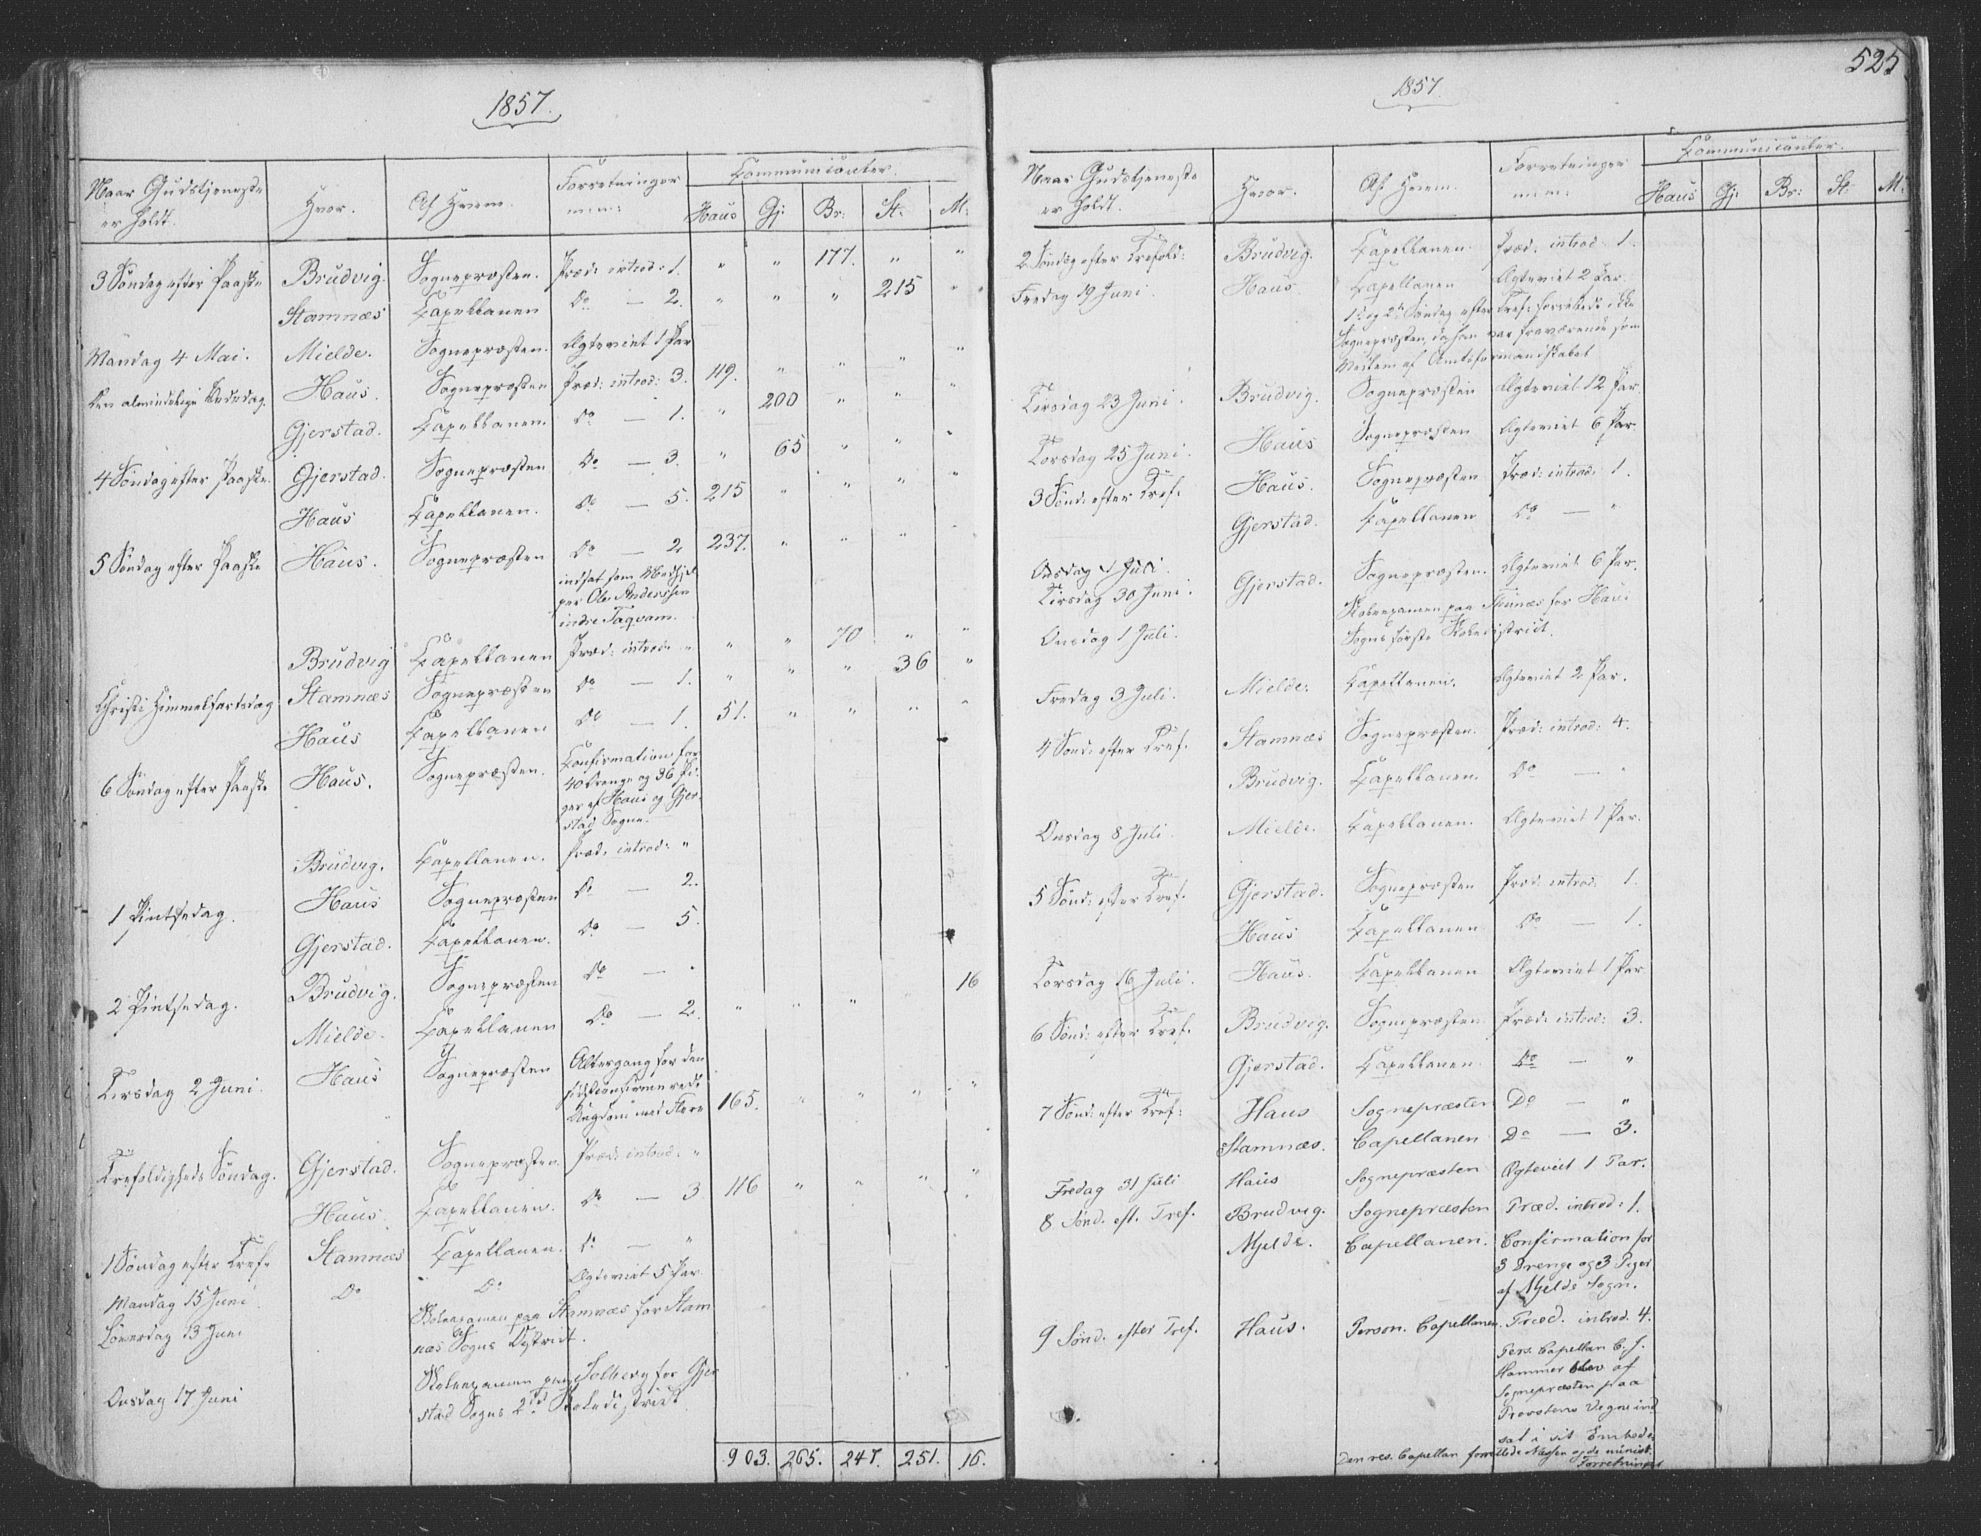 1857.
Naar Gudstjeneste er holdt. Hvor. Af Hvem. Forretninger m.m: Communicanter.
Haus Gj: Br: St. M:
3 Søndag efter Paaske Brudvig. Sognepræsten. Præd: introd: 1. " " 177. " "
Stamnæs Capellanen Do — 2. " " " 215 "
Mandag 4 Mai. Mielde. Sognepræsten. Ægteviet 1 Par
Den almindelige Bededag. Haus. Sognepræsten Præd: introd: 3. 119. " " " "
Gjerstad. Capellanen. Do — 1. " 200 " " "
4 Søndag efter Paaske. Gjerstad. Sognepræsten Do — 3. " 65 " " "
Haus Capellanen. Do — 5. 215 " " " "
5 Søndag efter Paaske Haus. Sognepræsten Do — 2 237. " " "
indsat som Medhjel
per Ole Anderssen
indre Taqvam.
Brudvig Capellanen Præd: introd: " " " 70 " "
Christi Himmelfartsdag Stamnæs Sognepræsten Do — 1. " " " 36 "
Haus Capellanen Do — 1. 51. " " " "
6 Søndag efter Paaske Haus. Sognepræsten. Confirmation for
40 Drenge og 36 Pi-
ger af Haus og Gjer-
stad Sogne.
Brudvig. Capellanen. Præd: introd: "
1 Pintsedag. Haus Sognepræsten Do — 2.
Gjerstad. Capellanen. Do — 5.
2 Pintsedag. Brudvig. Sognepræsten Do — "
Mielde. Capellanen Do — 2. " " " " 16
Tirsdag 2 Juni. Haus Sognepræsten Altergang for den
sidstconfirmerede
Ungdom med Flere 165. " " " "
Trefoldigheds Søndag. Gjerstad. Sognepræsten. Præd: introd: "
Haus. Capellanen. Do — 3 116 " " " "
1 Søndag efter Tref. Stamnæs Capellanen. Do — "
Mandag 15 Juni. Do Do Ægteviet 5 Par
Løverdag 13 Juni Skoleexamen paa Stamnæs for Stam
næs Sogns Distrikt.
Onsdag 17 Juni Skoleexamen paa Solberg for Gjer
stad Sogns 2d Skoledistrikt.
903. 265. 247. 251. 16.
525
1857.
Naar Gudstjeneste er holdt. Hvor. Af Hvem. Forretninger m.m: Communicanter.
Haus Gj: Br: St. M:
2 Søndag efter Trefold: Brudvig. Capellanen. Præd. introd: 1.
Fredag 19 Juni. Haus. Capellanen Ægteviet 2 Par.
1ste og 2den Søndag efter Tref: forrettede ikke
Sognepræsten, da han var fraværende som
Medlem af Amtsformandskabet
Tirsdag 23 Juni. Brudvig. Sognepræsten Ægteviet 12 Par.
Torsdag 25 Juni. Haus Sognepræsten Ægteviet 6 Par
3 Sønd: efter Tref. Haus. Sognepræsten Præd: introd: 1.
Gjerstad. Capellanen Do — "
Onsdag 1 Juli.
Tirsdag 30 Juni. Gjerstad. Sognepræsten. Ægteviet 6 Par.
Onsdag 1 Juli. Skoleexamen paa for Haus
Sogns første Skoledistrict.
Fredag 3 Juli. Mielde. Capellanen. Ægteviet 2 Par.
4 Sønd: efter Tref. Stamnæs Sognepræsten. Præd: introd: 4.
Brudvig. Capellanen. Do — "
Onsdag 8 Juli. Mielde. Capellanen. Ægteviet 1 Par.
5 Sønd: efter Tref. Gjerstad. Sognepræsten Præd: introd: 1.
Haus Capellanen Do — 1.
Torsdag 16 Juli. Haus. Capellanen Ægteviet 1 Par
6 Sønd: efter Tref. Brudvig. Sognepræsten. Præd: introd: 3.
Gjerstad. Capellanen. Do — "
7 Sønd: efter Tref: Haus Sognepræsten Do — "
Stamnæs. Capellanen Do — 3.
Fredag 31 Juli Haus Sognepræsten Ægteviet 1 Par.
8 Sønd. eft. Tref. Brudvig. Sognepræsten Præd. introd: 1.
Mjelde. Capellanen. Confirmation for
3 Drenge og 3 Piger
af Mjelds Sogn.
9 Sønd. efter Tref. Haus. Person. Capellanen. Præd. introd. 4.
Pers. Capellan C. J.
Hammer blev af
Sognepræsten paa
Provstens Vegne ind
sat i sit Embede.
Den res. Capellan forrettede Messen og de minist.
Forretninger